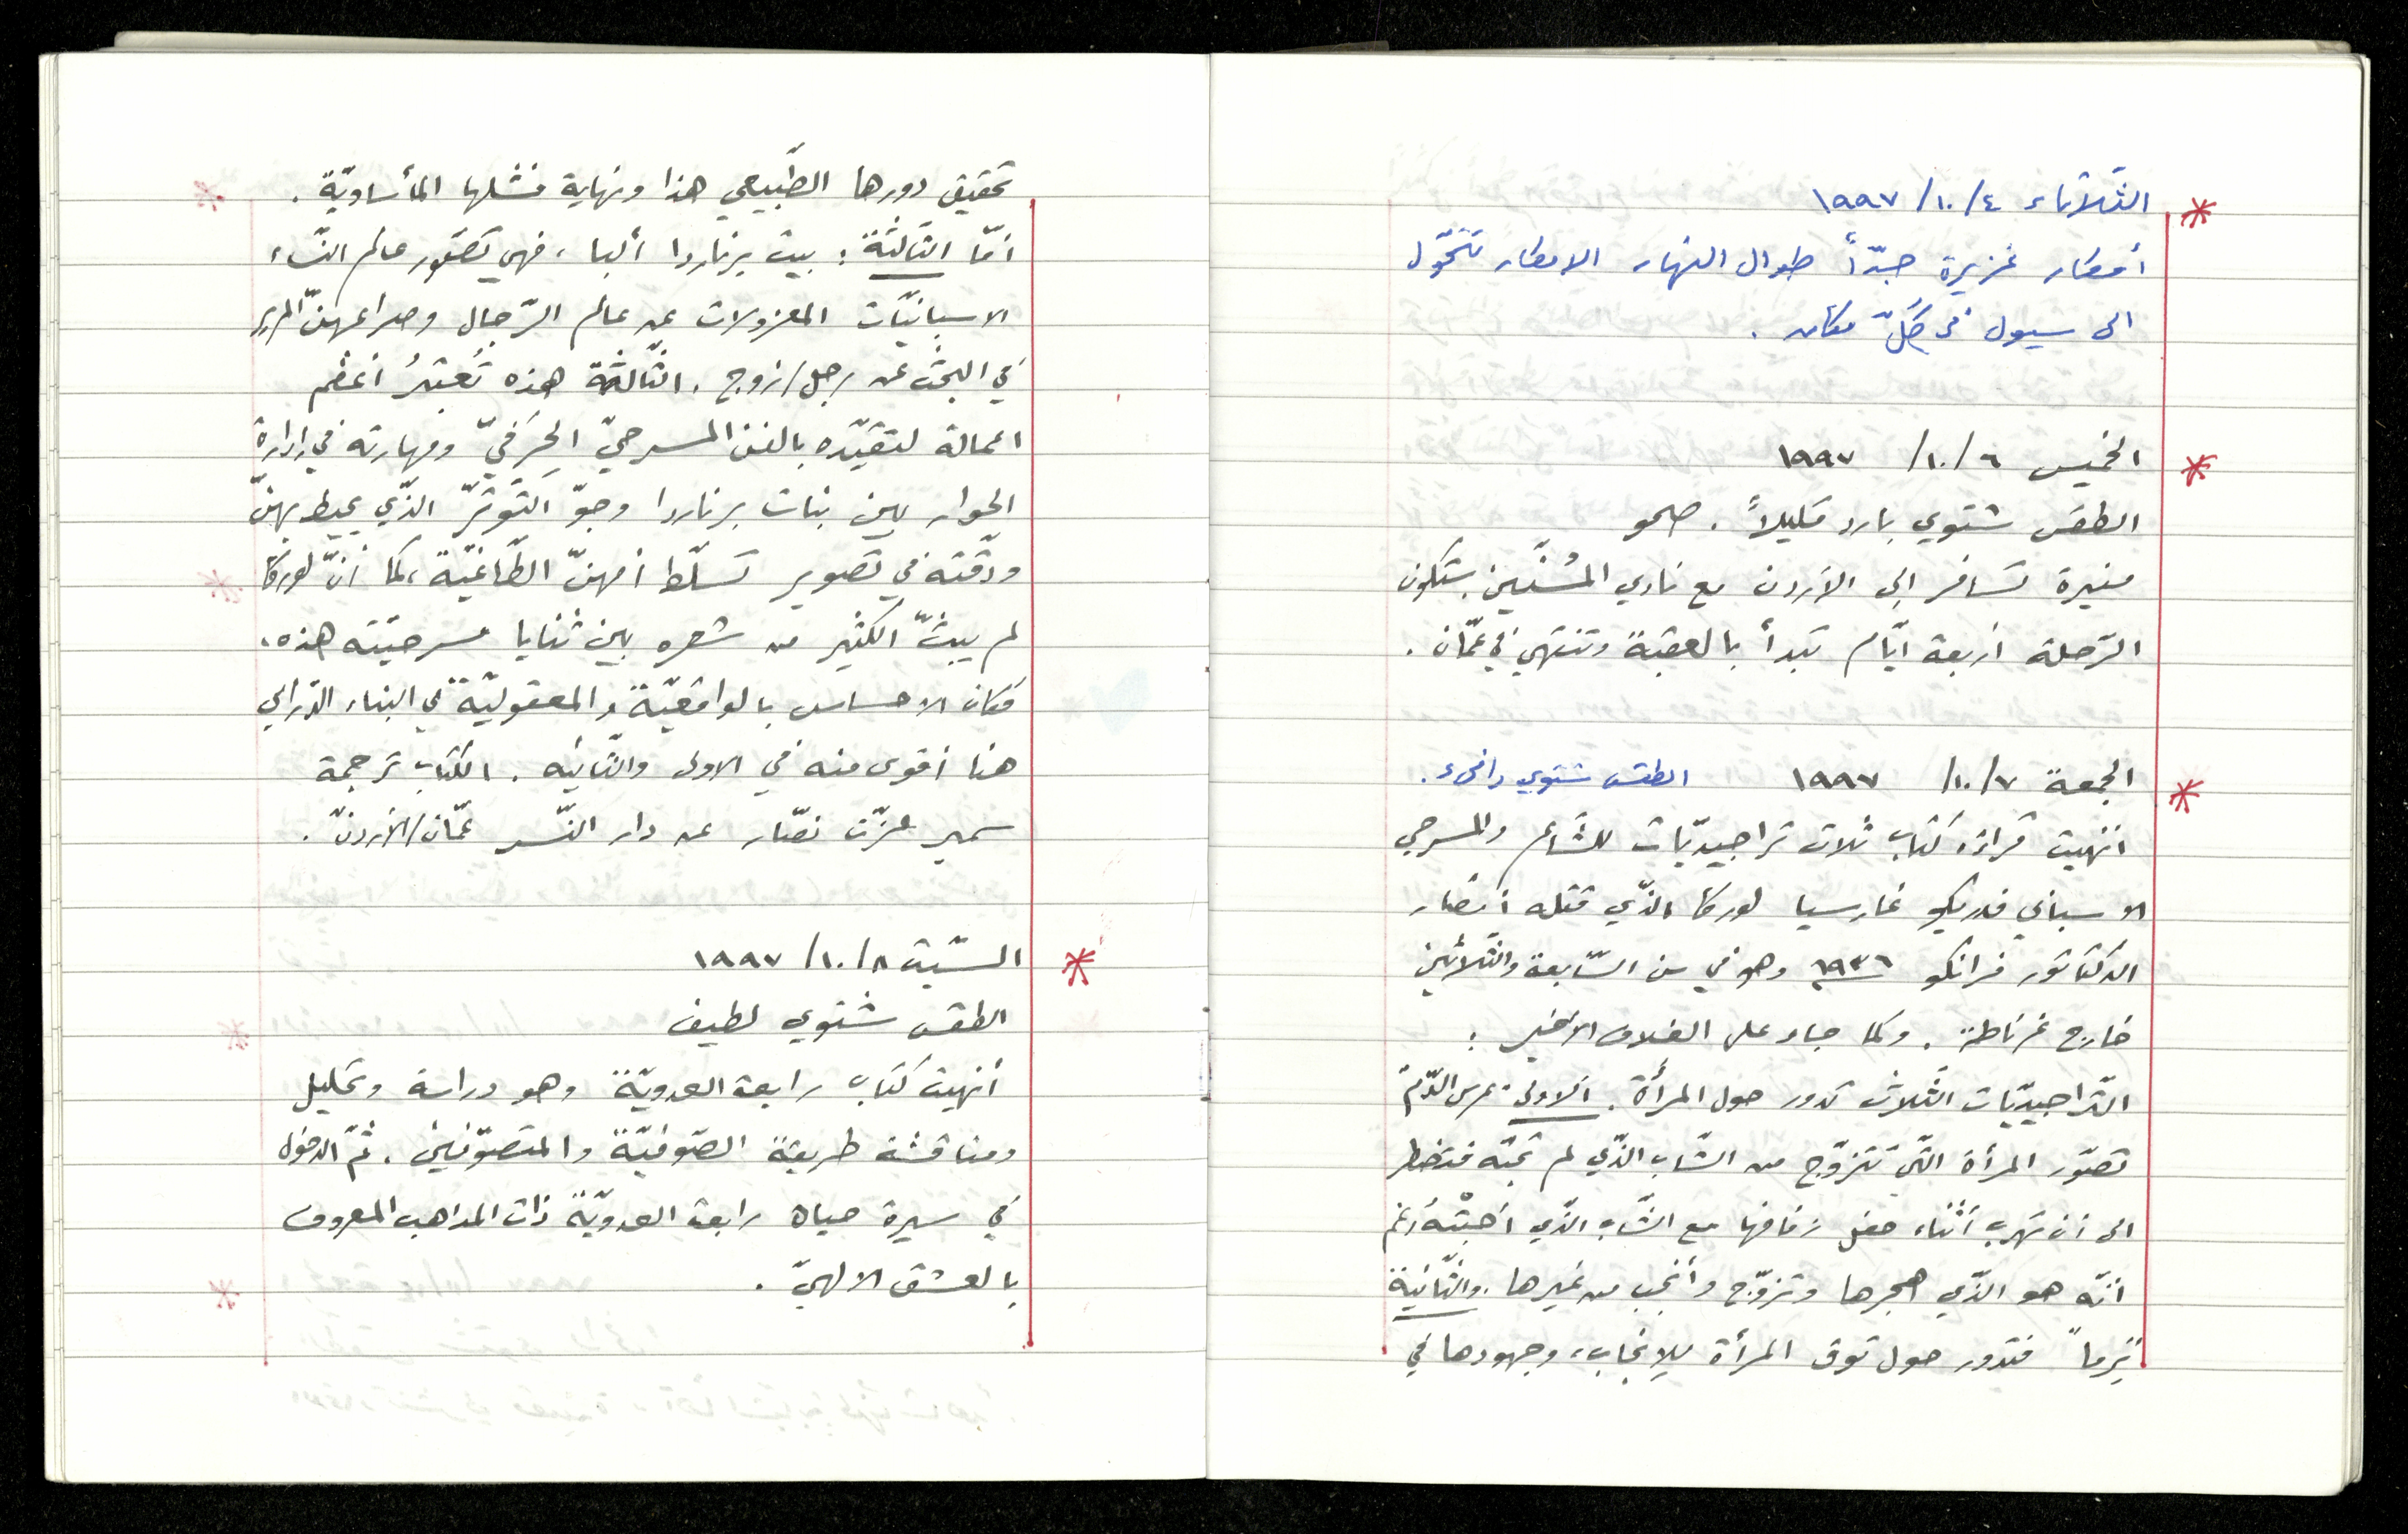 * الثّلاثاء ٤/١٠/١٩٩٧
أمطار غزيرة جدّاً طوال النهار الامطار تتحوّل
الى سيول في كلّ مكان .
* الخميس ٦/١٠/١٩٩٧
الطقس شتوي بارد قليلاً . صحو
منيرة تسافر إلى الأردن مع نادي المُسنّين ستكون
الرّحلة أربعة أيّام تبدأ بالعقبة وتنتهي في عمّان .
* الجمعة ٧/١٠/١٩٩٧ الطقس شتوي دافىء .
أنهيت قراءة كتاب ثلاث تراجيديّات للشّاعر والمسرحي
الاسباني فدريكو غارسيا لوركا الذّي قتله أنصار
الدكتاتور فرانكو ١٩٣٦ وهو في سن السّابعة والثّلاثين
خارج غرناطة . وكما جاء على الغلاف الأخير :
التّراجيديّات الثّلاث تدور حول المرأة . الاولى "عرس الدّم"
تصوّر المرأة التّي تتزوّج من الشّاب الذّي لم تحبّه فتضطر
الى أن تهرب أثناء حفل زفافها مع الشّاب الذّي أحبّتهُ رغم
أنّه هو الذّي هجرها وتزوّج وأنجب من غيرها . والثّانية
يرما" فتدور حول توق المرأة للإنجاب ، وجهودها في
تحقيق دورها الطّبيعي هذا ونهاية فشلها المأساويّة .
أمّا الثالثة : بيت برناردا ألبا ، فهي تصّور عالم النّساء
الاسبانيّات المعزولات عن عالم الرّجال وصراعهنّ المرير
في البحث عن رجل/زوج . الثّالثة هذه تُعتبرُ أعظم
اعماله لتقيّده بالفن المسرحيّ الحِرَفيّ ومهارته في إدارة
الحوار بين بنات برناردا وجوّ التّوتّر الذّي يحيط بهنّ
ودقّته في تصوير تسلّط أمهنّ الطّاغيّة ، كما أنّ لوركا
لم يبثّ الكثير من شعره بين ثنايا مسرحيّته هذه ،
فكان الاحساس بالواقعيّة والمعقوليّة في البناء الدّرامي
هنا أقوى منه في الاولى والثّانيه . الكتاب ترجمة
سمير عزّت نصّار عن دار النّسر عمّان/الأردنّ .
* السّبت ٨/١٠/١٩٩٧
الطقس شتوي لطيف
أنهيت كتاب رابعة العدويّة وهو دراسة وتحليل
ومناقشة طريقة الصّوفيّة والمتصوّفين . ثمّ الدخول
في سيرة حياة رابعة العدويّة ذات المذاهب المعروف
بالعشق الالهيّ .